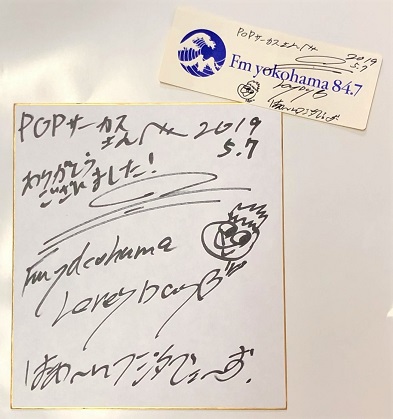 POPサーカスさんへ 2019
5.7
Fm yokohama 84.7
POPサーカス
さんへ 2019
5.7
ありがとう
ございました!
Fm yokohama
Lovely Day
はぁ〜いフジタでぇ〜す.